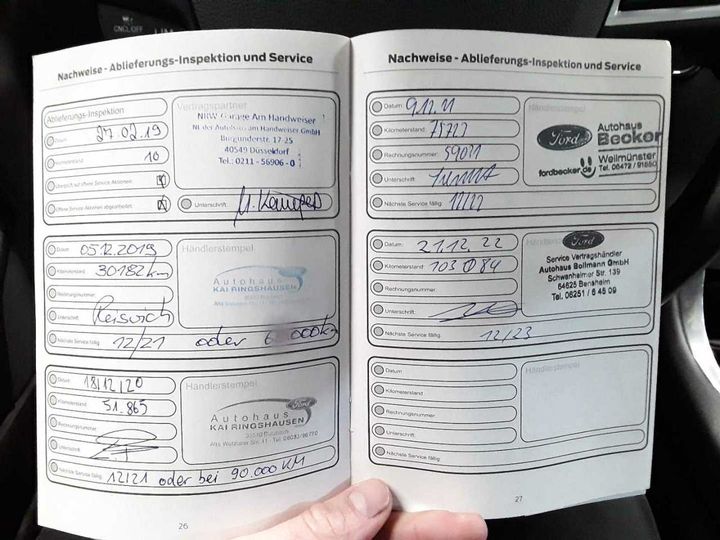 Nachweise - Ablieferungs-Inspektion und Service
Ablieferungs-Inspektion
Datum 27.02.19
Kilometerstand 10
Überprüft auf offene Service-Aktionen
Offene Service-Aktionen abgearbeitet
Vertragspartner
NRW Garage Am Handweiser
NL der Autohaus am Handweiser GmbH
Burgunderstr. 17-25
40549 Düsseldorf
Tel.: 0211 - 56906 - 0
Unterschrift
Datum 05.12.2019
Kilometerstand 30182 km
Rechnungsnummer
Unterschrift
Nächste Service fällig: 12/21 oder
Händlerstempel
Autohaus
KAI RINGSHAUSEN
Datum 18/12/20
Kilometerstand 51.865
Rechnungsnummer
Unterschrift
Nächste Service fällig: 12/21 oder bei 90.000 KM
Händlerstempel
Ford
Autohaus
KAI RINGSHAUSEN
26
Nachweise - Ablieferungs-Inspektion und Service
Datum: 9.12.21
Kilometerstand: 75727
Rechnungsnummer:
Unterschrift:
Nächste Service fällig: 12/22
Händlerstempel
Ford
Autohaus
Becker
fordbecker.de
Weilmünster
Tel. 06472 / 91550
Datum: 21.12.22
Kilometerstand: 103 084
Rechnungsnummer:
Unterschrift:
Nächste Service fällig: 12/23
Händlerstempel
Ford
Service Vertragshändler
Autohaus Bollmann GmbH
Schwanheimer Str. 139
64625 Bensheim
Tel. 06251 / 6 45 09
Datum:
Kilometerstand:
Rechnungsnummer:
Unterschrift:
Nächste Service fällig:
Händlerstempel
27